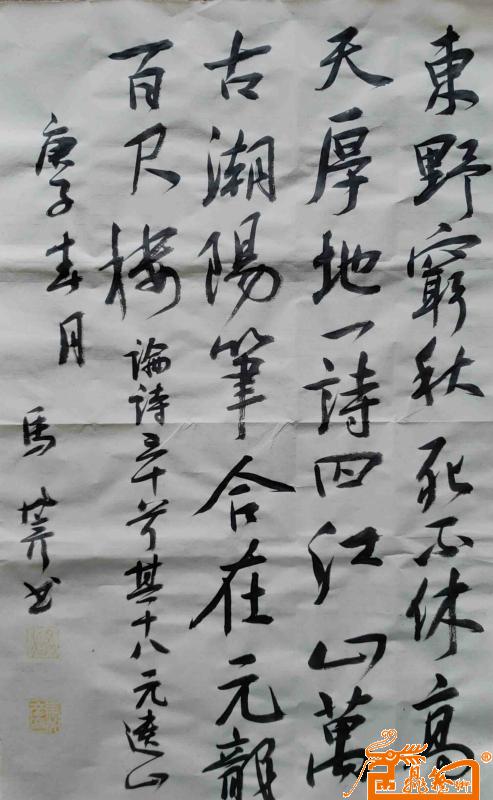 東野窮秋死不休高
天厚地一詩囚江山萬
古潮陽筆合在元龍
百尺樓
論詩三十首其十八元遺山
庚子春月 馬 书